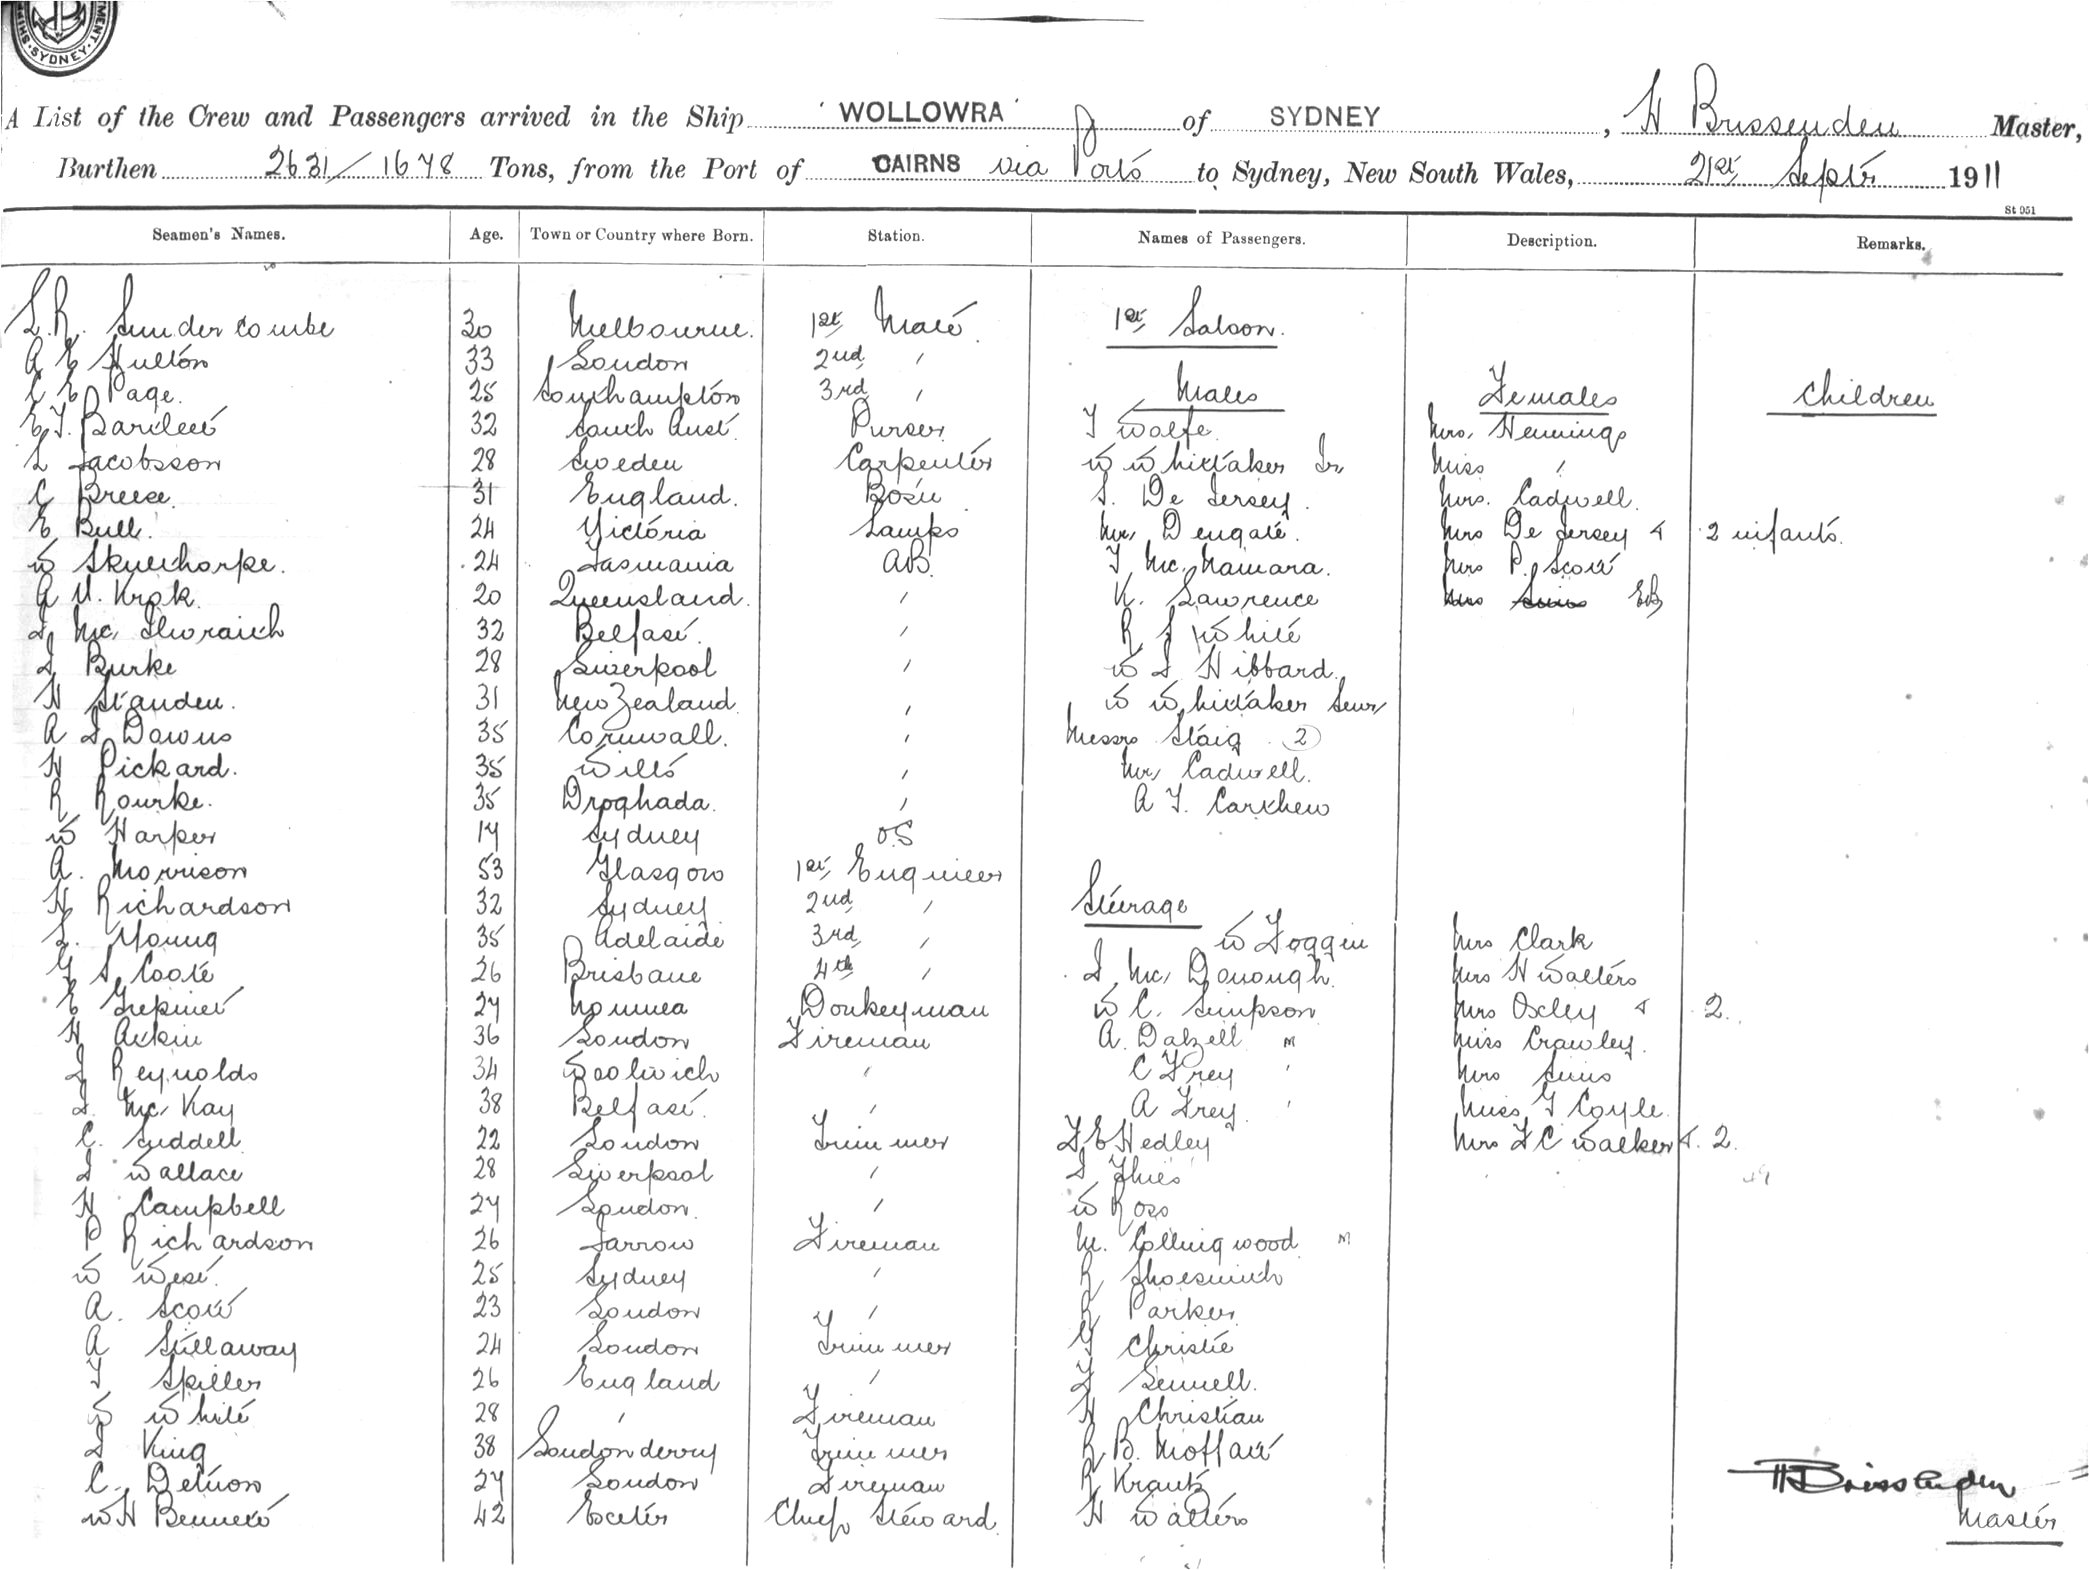 SYDNEY
A List of the Crew and Passengers arrived in the Ship 'WOLLOWRA' of SYDNEY, H Brissenden Master,
Burthen 2631/1678 Tons, from the Port of CAIRNS via Ports to Sydney, New South Wales, 21st Septr 1911
St 951
Seamen's Names. Age. Town or Country where Born. Station. Names of Passengers. Description. Remarks.
L. R. Sunder combe 30 Melbourne. 1st Mate 1st Saloon.
A E Hulton 33 London 2nd "
C E Page. 25 Southampton 3rd " Males Females Children
E. J. Bartlett 32 South Aust. Purser T Wolfe Mrs. Hennings
L Jacobsson 28 Sweden Carpenter W Whittaker Jr Miss "
C Breese. 31 England. Bosn S. De Jersey. Mrs. Cadwell.
E Bull. 24 Victoria Lamps Mr. Dengate. Mrs De Jersey & 2 infants.
W Skyethorpe. 24 Tasmania AB. T McNamara. Mrs P. Scott
A Krok. 20 Queensland. " K. Lawrence Mrs Sims EB
J McIlwraith 32 Belfast. " R J White
J Burke 28 Liverpool " W J Hibbard.
H Standen. 31 New Zealand. " W Whittaker Senr
A J Downs 35 Cornwall. " Messrs Staig 2
H Pickard. 35 Wilts " Mr Cadwell.
R Rourke. 35 Drogheda. " A J. Carthew
W Harper 17 Sydney O.S
A. Morrison 53 Glasgow 1st Engineer
H Richardson 32 Sydney 2nd " Steerage
L. Young 35 Adelaide 3rd " W Foggin Mrs Clark
G S Coote 26 Brisbane 4th " J McDonough. Mrs H Walters
E 27 Noumea Donkeyman W C. Simpson Mrs Oxley & 2.
H Atkin 36 London Fireman A. Dalzell " Miss Crawley.
J Reynolds 34 Woolwich " C Frey " Mrs Sims
J. McKay 38 Belfast. " A Frey. " Miss G Coyle.
C. Siddell 22 London Trimmer F E Hedley Mrs F C Walker & 2.
J Wallace 28 Liverpool " J Thies
H Campbell 27 London. " W Ross
P Richardson 26 Jarrow Fireman M. Collingwood
W West. 25 Sydney " R Shoesmith
A. Scott 23 London " R Parker
A Stillaway 24 London Trimmer G Christie
T Spiller 26 England " J Sennell.
W White 28 " Fireman H Christian
J King 38 Londonderry Trimmer R B. Moffatt
C. Detnon 27 London Fireman R Krantz
W H Bennett 42 Exeter Chief Steward. H Walters
H Brissenden
Master